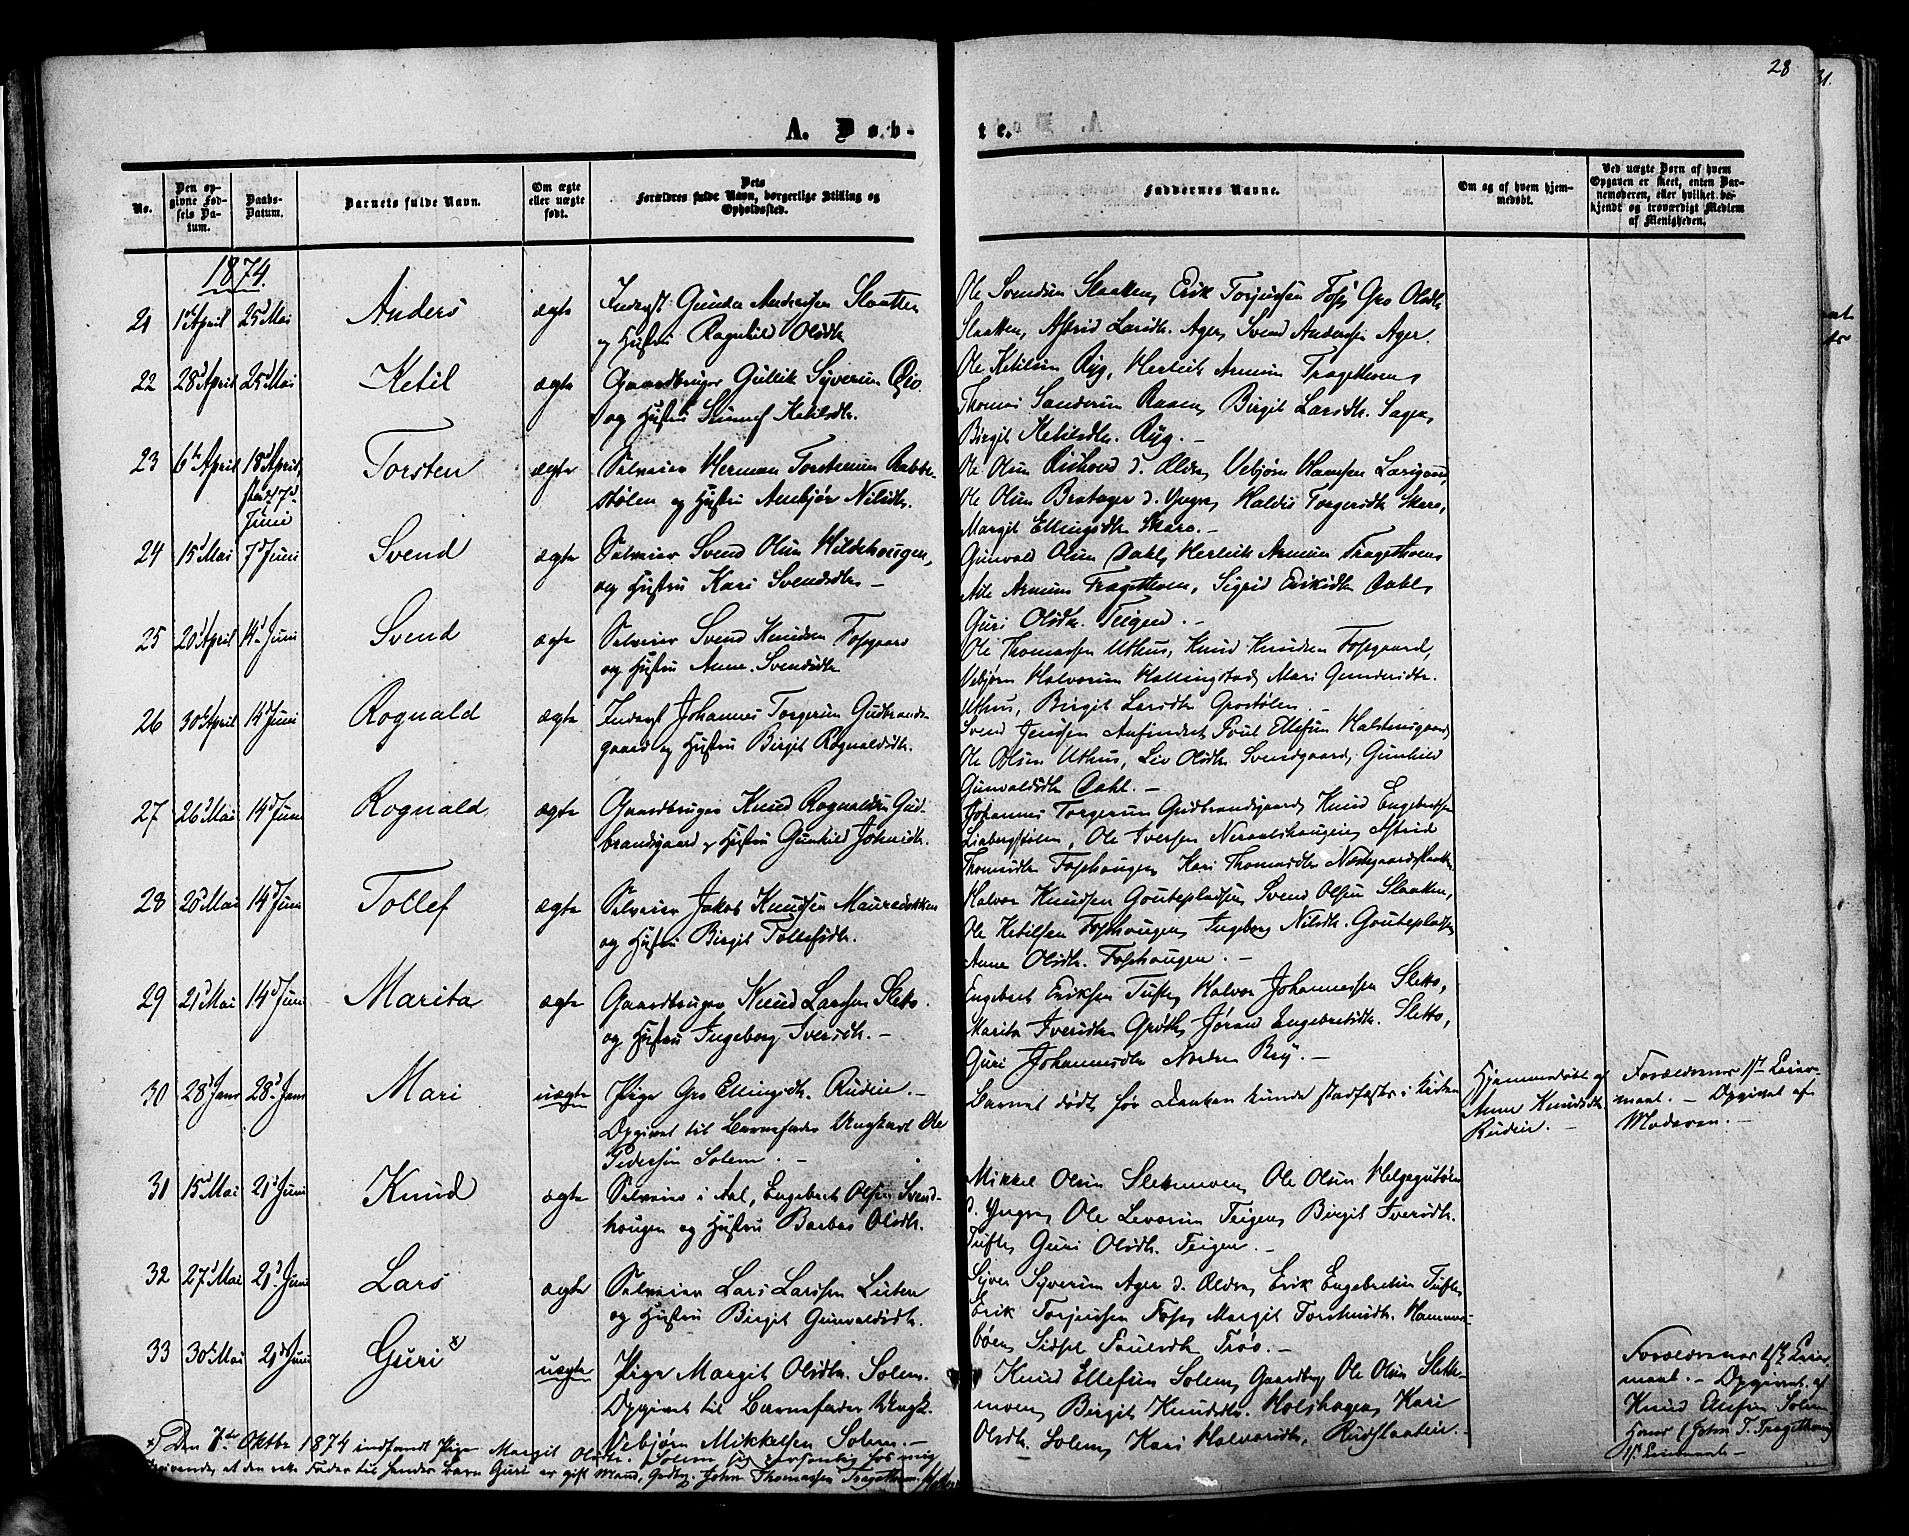 28
A. Døb-
te.
No.
Den opgivne Fødsels Datum.
Daabs-Datum.
Barnets fulde Navn.
Om ægte eller uægte født.
Dets Forældres fulde Navn, borgerlige Stilling og Opholdssted.
Faddernes Navne.
Om og af hvem hjemmedøbt.
Ved uægte Børn af hvem Opgaven er skeet, enten Barnemoderen, eller hvilket bekjendt og troværdigt Medlem af Menigheden.
1874.
21 1d April 25d Mai Anders ægte
Inderst Gunder Andersen Slaatten
og Hustru Ragnhild Olsdtr
Ole Svendsen Slaatten, Erik Torjussen Foss, Gro Olsdtr
Slaatten, Astrid Larsdtr. Ager, Svend Andersen Ager.
22 28d April 25d Mai Ketil ægte
Gaardbruger Gullik Syversen
og Hustru Ketilsdtr.
Ole Ketilsen Ryg, Herleik Arnesen Tragethon,
Thomas Sandersen Raaen, Birgit Larsdtr. Sagen,
Birgit Ketilsdtr. Ryg. -
23 6te April 18d April, stadf. 7d Juni Torsten ægte
Selveier Herman Torstensen Rabbe-
stølen og Hustru Ambjør Nilsdtr.
Ole Olsen d. Ældre, Vebjørn Hansen Larsgaard,
Ole Olsen Bratager d. Yngre, Haldis Torgersdtr Skaro,
Margit Ellingsdtr Skaro. -
24 15d Mai 7d Juni Svend ægte
Selveier Svend Olsen Hildehougen,
og Hustru Kari Svendsdtr -
Gunvald Olsen Dahl, Herleik Arnesen Tragethon,
Atle Arnesen Tragethon, Sigrid Eriksdtr Dahl,
Guri Olsdtr. Teigen. -
25 20d April 14d Juni Svend ægte
Selveier Svend Knudsen Fossgaard
og Hustru Anne Svendsdtr
Ole Thomassen Uthus, Knud Knudsen Fossgaard,
Vebjørn Halvorsen Hallingstad, Mari Gundersdtr.
Uthus, Birgit Larsdtr Grostølen. -
26 30d April 14d Juni Rognald ægte
Inderst Johannes Torgersen Gudbrands-
gaard og Hustru Birgit Rognaldsdtr.
Svend Jensen Aufinset, Poul Ellefsen Halstensgaard,
Ole Olsen Uthus, Liv Olsdtr Svendsgaard, Gunhild
Gunvaldsdtr Dahl. -
27 26d Mai 14d Juni Rognald ægte
Gaardbruger Knud Rognaldsen Gud-
brandsgaard og Hustru Gunhild Johnsdtr.
Johannes Torgersen Gudbrandsgaard, Knud Engebretsen
Liabergstølen, Ole Iversen Neraalshaugen, Astrid
Thomasdtr Fosshougen, Kari Thomasdtr
28 20d Mai 14d Juni Tollef ægte
Selveier Jakob Knudsen
og Hustru Birgit Tollefsdtr.
Halvor Knudsen Gouteplassen, Svend Olsen Slaatten,
Ole Ketilsen Fosshougen, Ingeborg Nilsdtr. Gouteplassen,
Anne Olsdtr. Fosshougen. -
29 21d Mai 14d Juni Marita ægte
Gaardbruger Knud Larssen Sletto
og Hustru Ingeborg Iversdtr. -
Engebret Eriksen Tufte, Halvor Johannessen Sletto,
Marita Iversdtr Grøth, Jørand Engebretsdtr. Sletto,
Guri Johannesdtr Nordre Ry. -
30 28d Jan 28d Jan Mari uægte
Pige Gro Ellingsdtr. Rudie. -
Opgivet til Barnefader Ungkarl Ole
Pedersen Solem. -
Barnet døde før Daaben kunde stadfæstes i Kirken
Hjemmedøbt af
Anne Knudsdtr
Rudie. -
Forældrenes 1ste Leier-
maal. - Opgivet af
Moderen. -
31 15d Mai 21d Juni Knud ægte
Selveier i Aal, Engebret Olsen Svend-
hougen og Hustru Barbro Olsdtr.
Mikkel Olsen Slettemoen, Ole Olsen Helgegutøen
d. Yngre, Ole Levorsen Teigen, Birgit Iversdtr.
Tufte, Guri Olsdtr. Teigen. -
32 27d Mai 21d Juni Lars ægte
Selveier Lars Larssen Luten
og Hustru Birgit Gunvaldsdtr.
Syver Syversen Ager d. Ældre, Erik Engebretsen Tufte,
Erik Torjussen Foss, Margit Torstensdtr. Hammers-
bøen, Sidsel Paulsdtr Trøo. -
33 30d Mai 21d Juni Guri x) uægte
Pige Margit Olsdtr. Solem.
Opgivet til Barnefader Ungk.
Vebjørn Mikkelsen Solem. -
Knud Ellefsen Solem, Gaardbr, Ole Olsen Slette-
moen, Birgit Knudsdtr. Holshagen, Kari
Olsdtr. Solem, Kari Halvorsdtr, Rudstaatien. -
Forældrenes 1ste Leier-
maal. - Opgivet af
Knud Ellefsen Solem
x) Den 7de Oktbr 1874 indfandt Pige Margit Olsdtr. Solem sig personlig hos mig
opgivende, at den rette Fader til hendes Barn Guri er gift Mand, Gdbr. John Thomassen Tragethon.